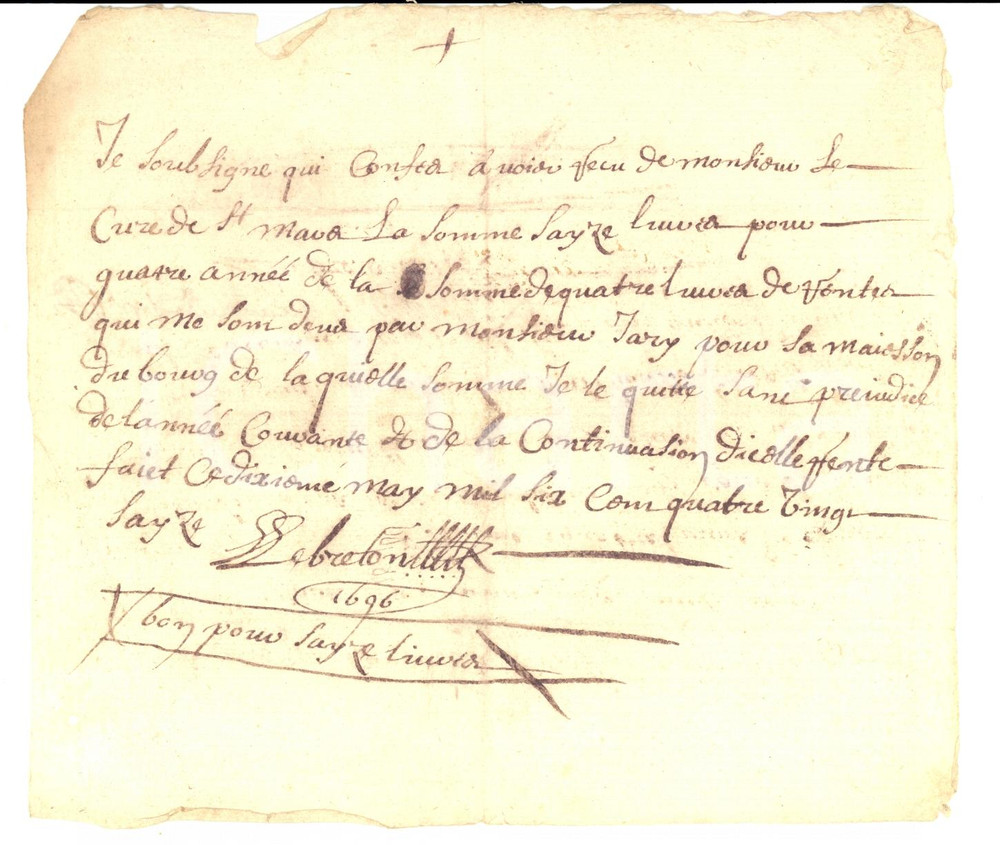 Je soubsigne qui Confes avoier recu de monsieur Le
Cure de St Mars La somme sayze livres pour
quatre année de la somme de quatre livres de rentes
qui me som deus par monsieur Jary pour sa maiesson
du bourg de laquielle somme Je le quitte sans preiudice
de lannéé Courante & de la Continuasion dicelle rente
faict Ce dixiémé may mil six Cem quatre vingt
sayze Lebreton
1696
bon pour sayze livres